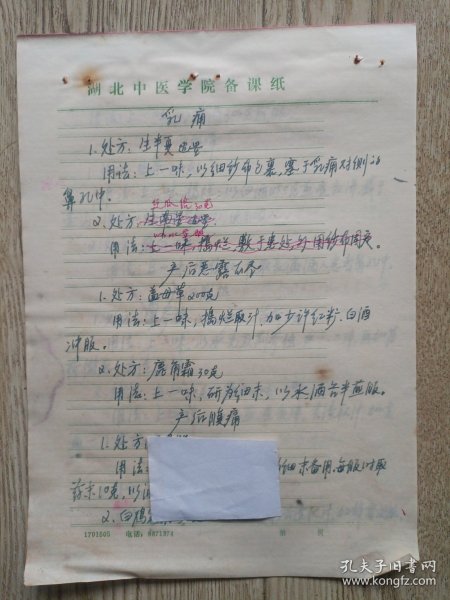 湖北中医学院备课纸
乳痈
1.处方:生半夏适量
用法:上一味,以细纱布包裹,塞于乳痈对侧的
鼻孔中。
丝瓜络30克
2.处方:适量
用法:上一味,捣烂,敷于患处,外用纱布固定。
产后恶露不尽
1.处方:益母草200克
用法:上一味,捣烂取汁,加少许红糖、白酒
冲服。
2.处方:鹿角霜30克
用法:上一味,研为细末,以水酒各半煎服。
产后腹痛
1.处方:
用法: 细末备用,每服时取
药末10克,以
2.白鸡
1701505 电话:8871374 第 页
孔夫子旧书网
www.kongfz.com